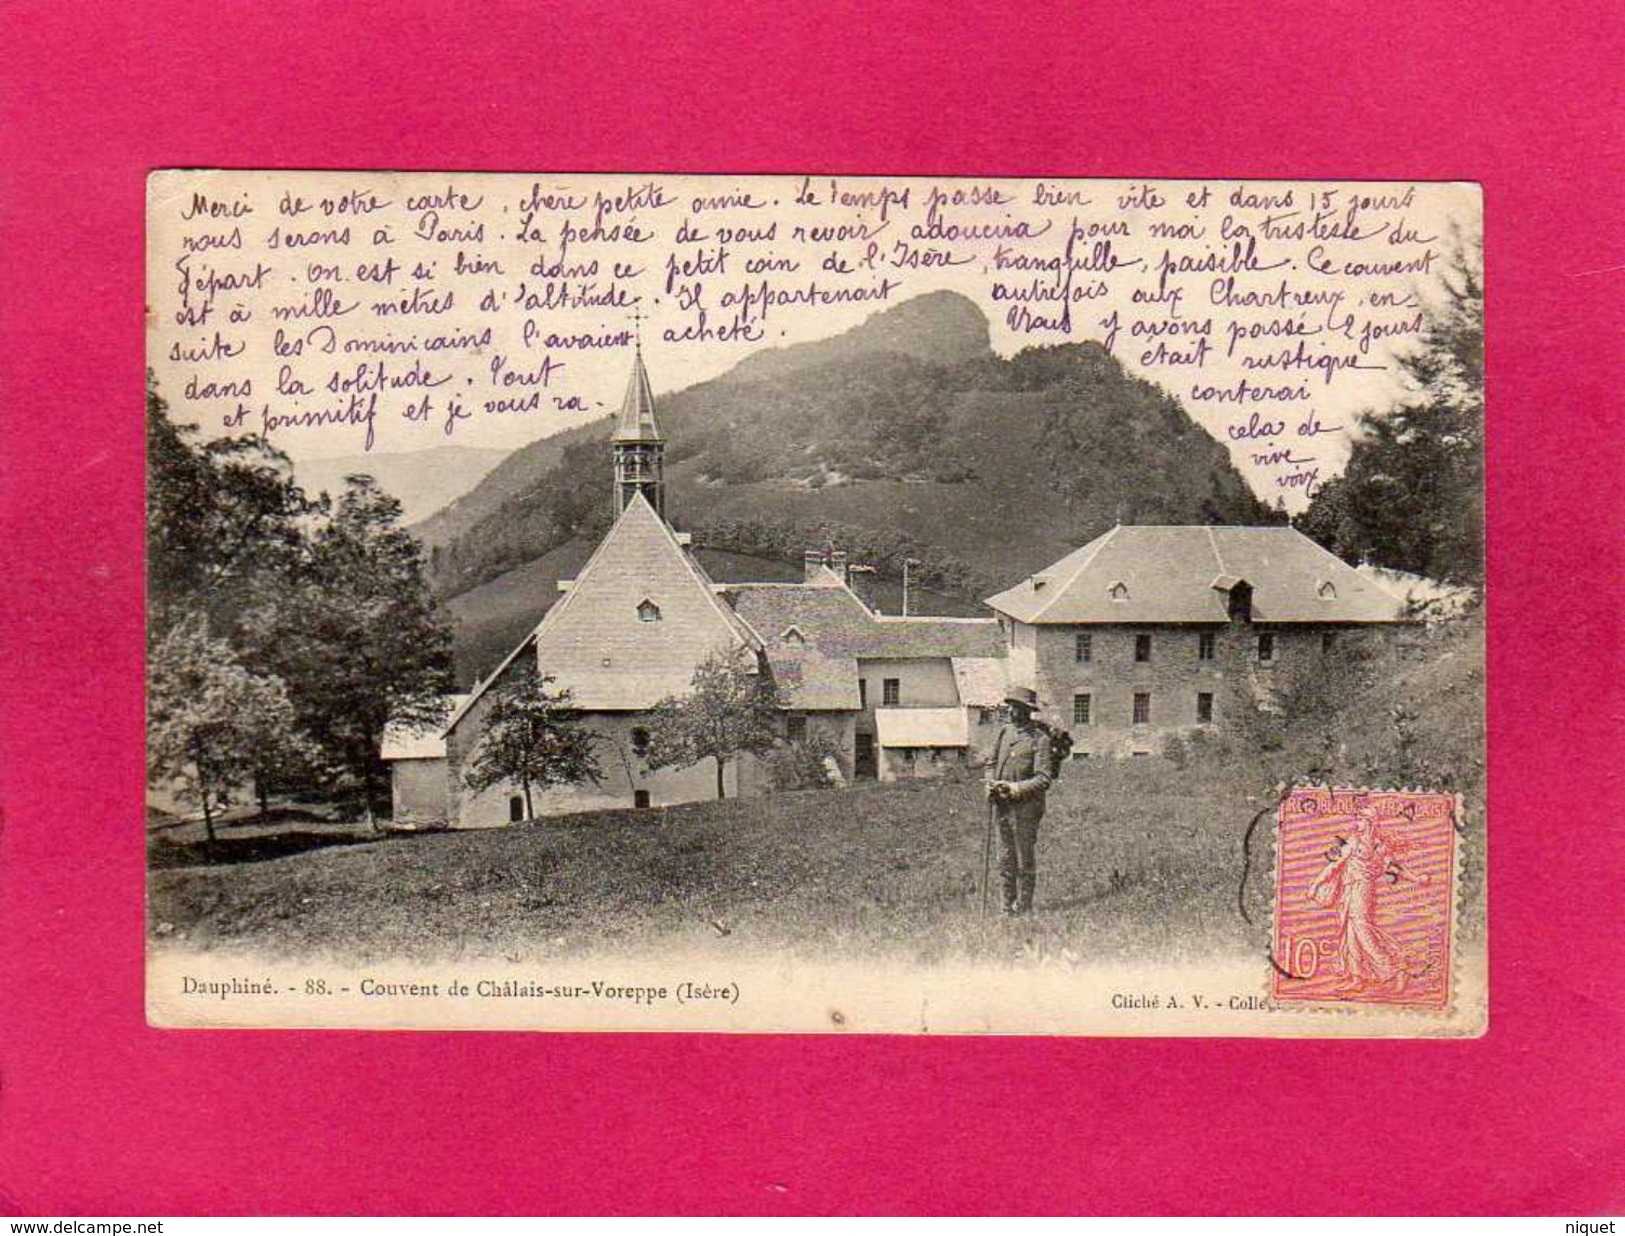 Merci de votre carte, chère petite amie. Le temps passe bien vite et dans 15 jours
nous serons à Paris. La pensée de vous revoir adoucira pour moi la tristesse du
départ. On est si bien dans ce petit coin de l'Isère, tranquille, paisible. Ce couvent
est à mille mètres d'altitude. Il appartenait autrefois aux Chartreux, en-
suite les Dominicains l'avaient acheté. Nous y avons passé 2 jours
dans la solitude. Tout était rustique
et primitif et je vous ra- conterai
cela de
vive
voix
REPUBLIQUE FRANÇAISE
10c
Dauphiné. - 88. - Couvent de Châlais-sur-Voreppe (Isère)
Cliché A. V. - Collec
www.delcampe.net
niquet